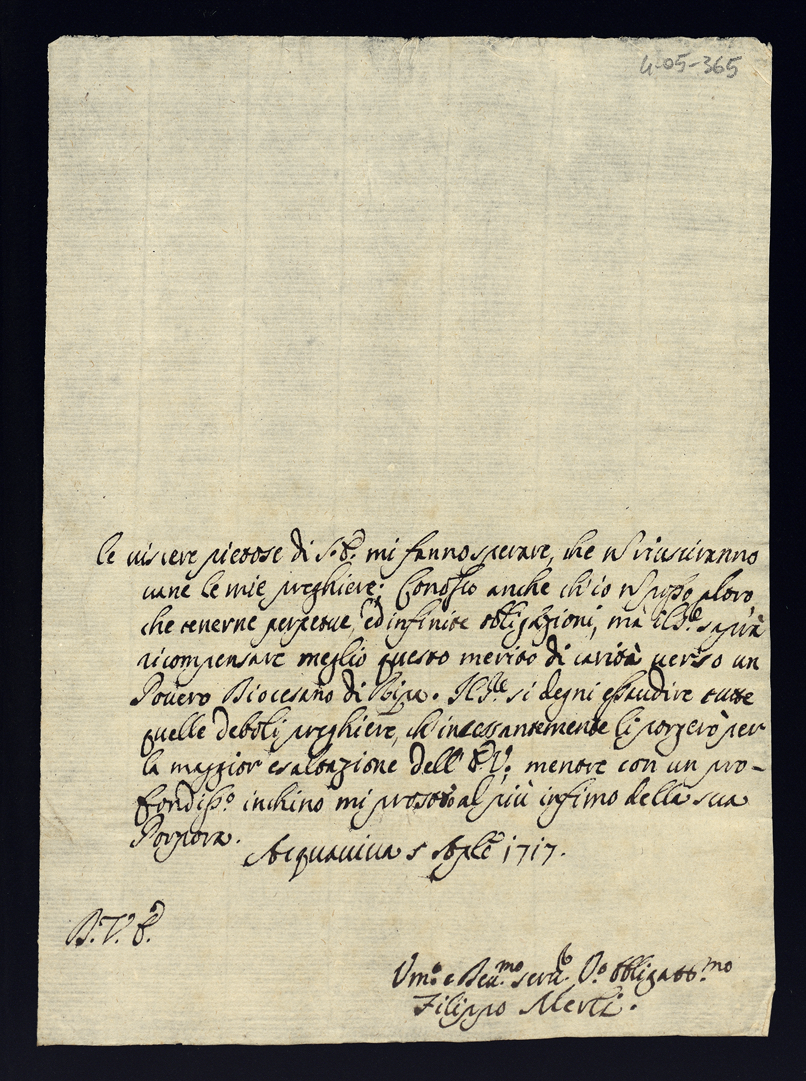 4-05-365
le viscere pietose di S. E. mi fanno sperare, che ñ riusciranno
vane le mie preghiere; Conosco anche ch'io ñ posso altro
che tenerne perpetue, ed infinite obligazioni, mà il Sig.re saprà
ricompensare meglio questo merito di carità verso un
Povero Diocesano di Ripa. Il Sig.re si degni esaudire tutte
quelle deboli preghiere, ch'incessantemente li porgerò per
la maggior esaltazione dell' E. V., mentre con un pro-
fondiss.o inchino mi prostro al più infimo della sua
Porpora.
Acquaviva 5 Aple 1717.
D. V. E.
Um.o e Dev.mo serv.e Obligatt.mo
Filippo Merli.